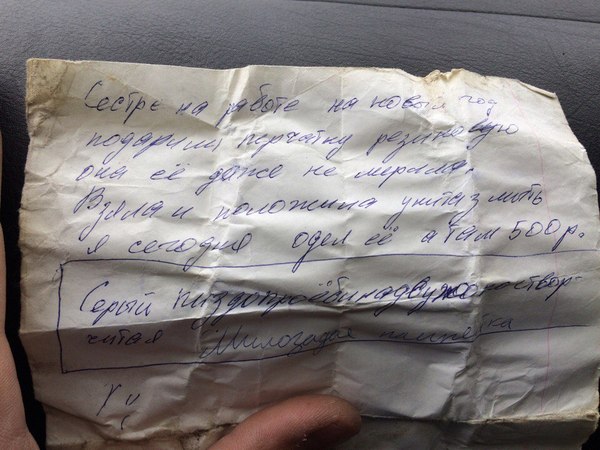 Сестре на работе на новый год
подарили перчатку резиновую
она её даже не мерила.
Взяла и положила унитаз мыть
я сегодня одел её а там 500р.
Серый
читая